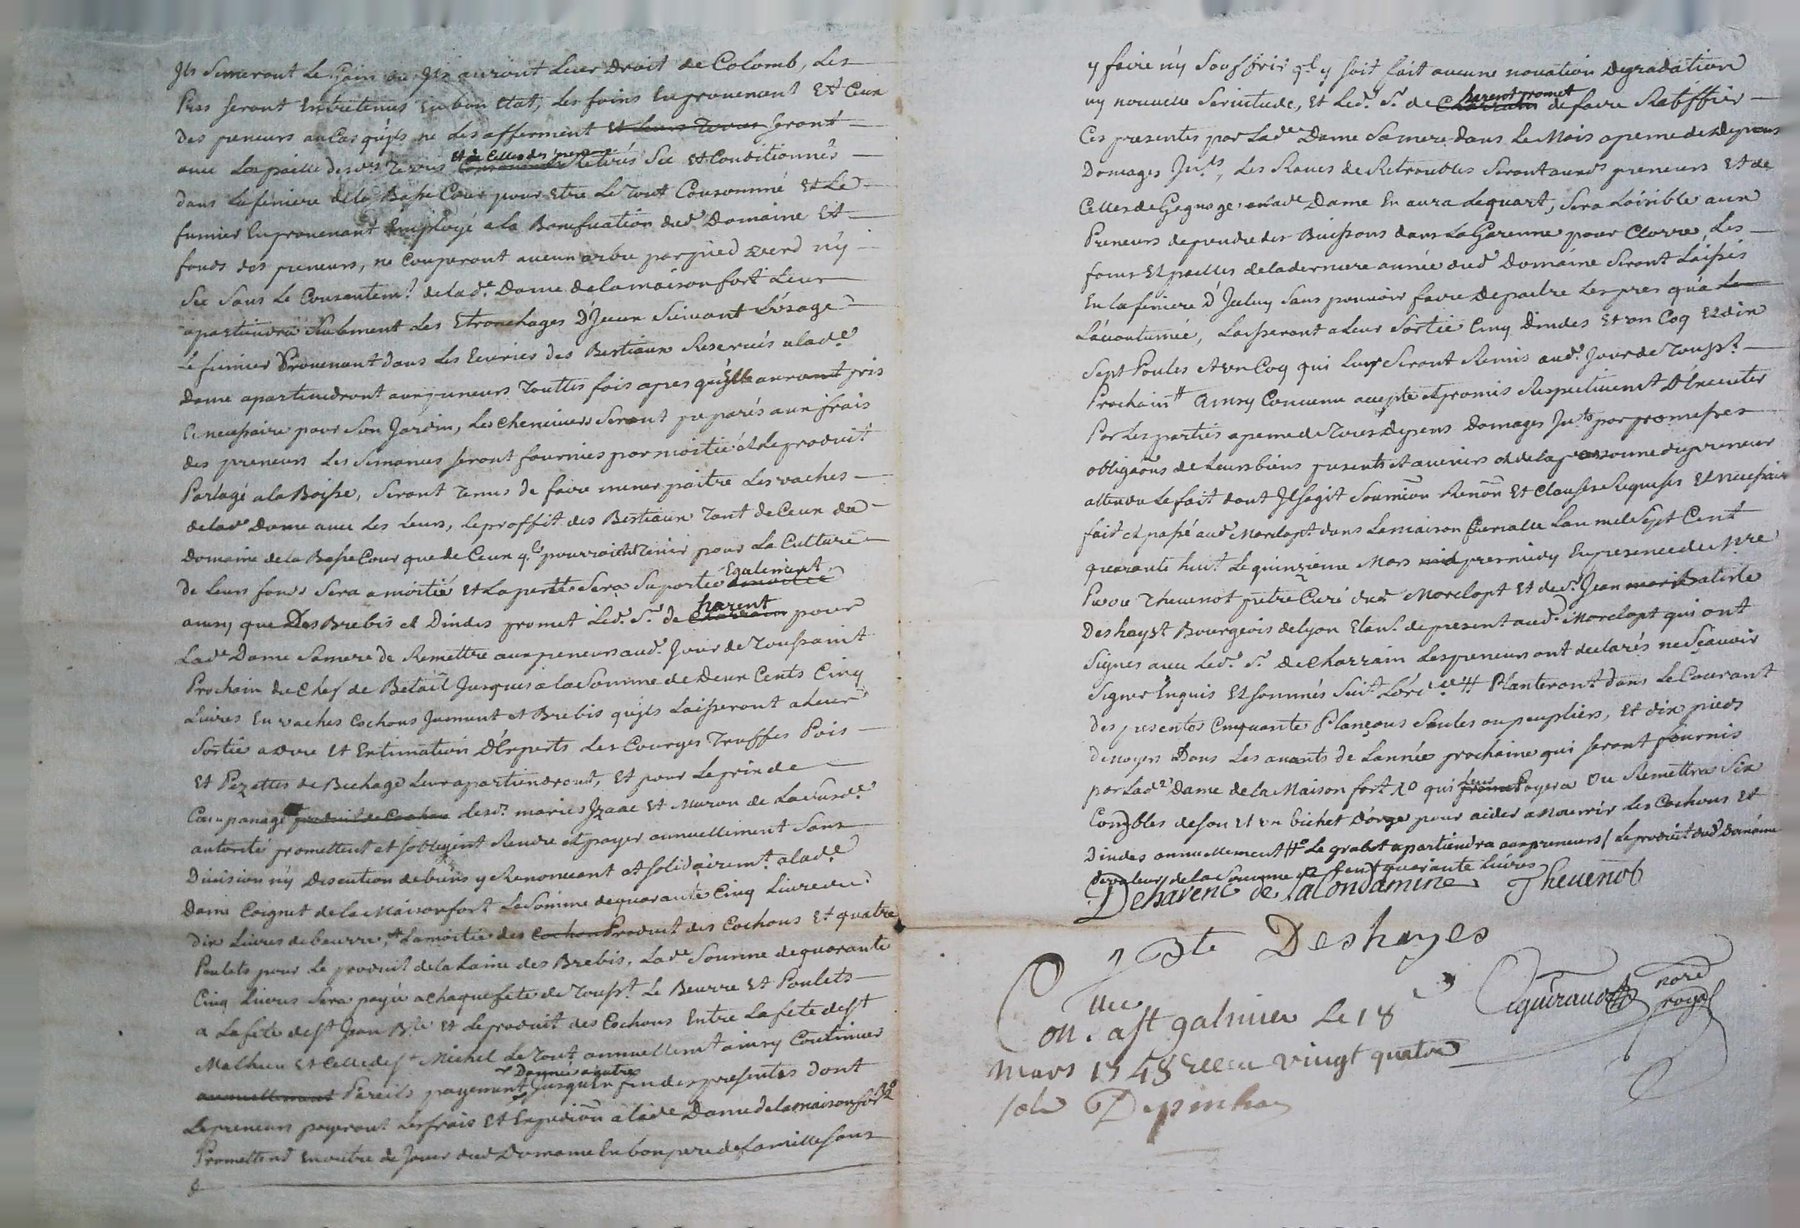 Ils Semeront Le Grain ou Ils auront Leur Droit de Colomb, Les
Pres Seront Entretenus En bon Etat, Les foins En provenant Et Ceux
des preneurs au Cas qu'ils ne Les afferment Et Leurs Terres Seront
avec La paille desd. Terres Et de Celles des preneurs Retirés Sec Et Conditionnés
dans La feniere de la Basse Cour pour Etre Le Tout Consommé Et Le
fumier En provenant Employé a la Bonification dud. Domaine Et
fonds des preneurs, ne Couperont aucun arbre par pied Verd n'y
Sec Sans Le Consentemt. de lad.e Dame de La maison fort Leur
apartiendra Seulement Les Etronchages D'Jceux Suivant L'Usage
Le fumier Provenant dans Les Ecuries des Bestiaux Reservés a lad.e
Dame apartiendront aux preneurs Touttes fois apres qu'Elle auront pris
Le necessaire pour Son Jardin, Les Cheneviers Seront preparés aux frais
des preneurs Les Semences Seront fournies par moitié et Le produit
Partagé a la Boisse, Seront Tenus de faire mener paitre Les vaches
de lad.e Dame avec Les Leurs, Le proffit des Bestiaux Tant de Ceux du
Domaine de la Basse Cour que de Ceux q.ls pourroient tenir pour La Culture
de Leurs fonds Sera a moitié et La perte Sera Suportée Egalement
ainsy que Des Brebis et Dindes promet Led. Sr. de harent pour
Lad.e Dame Sa mere de Remettre aux preneurs aud. Jour de Toussaint
Prochain du Chef de Betail Jusques a la Somme de Deux Cents Cinq
Livres En vaches Cochons Jument et Brebis qu'ils Laisseront a Leur
Sortie a Vüe Et Estimation D'Experts Les Courges Truffes Pois
Et Pezettes de Bechage Leur apartiendront, Et pour Le prix de
Campanage produit de Cochon Lesd. mariés Jzaac Et Muron de Lavis d.e
autorité promettent et S'obligent Rendre et payer annuellement Sans
Division n'y Discution de biens y Renoncent et Solidairemt. a lad.e
Dame Coignet de la Maisonfort La Somme de quarante Cinq Livres
Dix Livres de beurre, La moitié des Cochons Produit des Cochons Et quatre
Poulets pour Le produit de la Laine des Brebis. Lad.e Somme de quarante
Cinq Livres Sera payée a Chaque fete de Toust. Le Beurre Et Poulets
a La fete de St Jean Bte. Et Le produit des Cochons Entre La fete de St
Mathieu Et Celle de St Michel Le Tout annuellemt ainsy Continuer
annuellement Pareils payements Jusqu'En fin des presentes dont
Le preneurs payeront Les frais Et Expedion a lad.e Dame de la maison fort
Promettent En outre de Jouir dud. Domaine En bon pere de famille Sans
y faire n'y Souffrir q.l y Soit fait aucune novation Degradation
ny nouvelle Servitude, Et Led. Sr. de harent promet de faire Ratiffier
Ces presentes par Lad.e Dame Sa mere dans Le Mois a peine de Depens
Domages Jnts, Les Raves de Retroubles Seront auxd. preneurs Et de
Celles de Gagnage, Lad.e Dame En aura Le quart, Sera Loisible aux
Preneurs de prendre des Buissons dans La Garenne pour Clorre, Les
foins Et pailles de la derniere année dud. Domaine Seront Laissés
En La feniere d'Jceluy Sans pouvoir faire Depaitre Les pres qu'a
L'acoutumée, Laisseront a Leur Sortie Cinq Dindes Et un Coq Et dix
Sept Poules Et un Coq qui Leur Seront Remis aud. Jour de Toust.
Prochaint Ainsy Convenu accepté et promis Respectivement D'Executer
Par Les parties a peine de Tous Depens Domages Jnts par promesses
obligaõns de Leurs biens presents et avenirs et de la personne du preneur
attendu Le fait dont Jl S'agit Soumion Renon Et Clauses Requises Et necessaires
fait Et passé aud. Marclopt dans La maison Curialle L'an mil Sept Cent
quarante huit Le quinzieme Mars mid premiery En presence de Mre
Pierre Thevenot prêtre Curé dud. Marclopt et de Sr. Jean Batiste
Deshayst Bourgeois de Lyon Etant. de present aud. Marclopt qui ont
Signes avec Led. Sr. de Charrain Les preneurs ont declarés ne Sçavoir
Signer Enquis Et Sommés Suivt. L'orce Planteront dans Le Courant
des presentes Cinquante Plançons Saules ou peupliers, Et dix pieds
de noyers Dans Les avants de L'année prochaine qui Seront fournis
par Lad.e Dame de la Maison fort qui Leur Payera ou Remettra Six
Combles de Son et un bichet D'orge pour aider a Nourrir Les Cochons Et
Dindes annuellement Le grabot apartiendra aux preneurs / Le produit dud. Domaine
De valeur de la Somme de Cent quarante Livres
Deharenc de Lacondamine Thevenot
J Bte Deshayes
Guiraud nore royal
Con.llee a St galmier Le 18e
Mars 1748 Receu vingt quatre
sols Depinhac